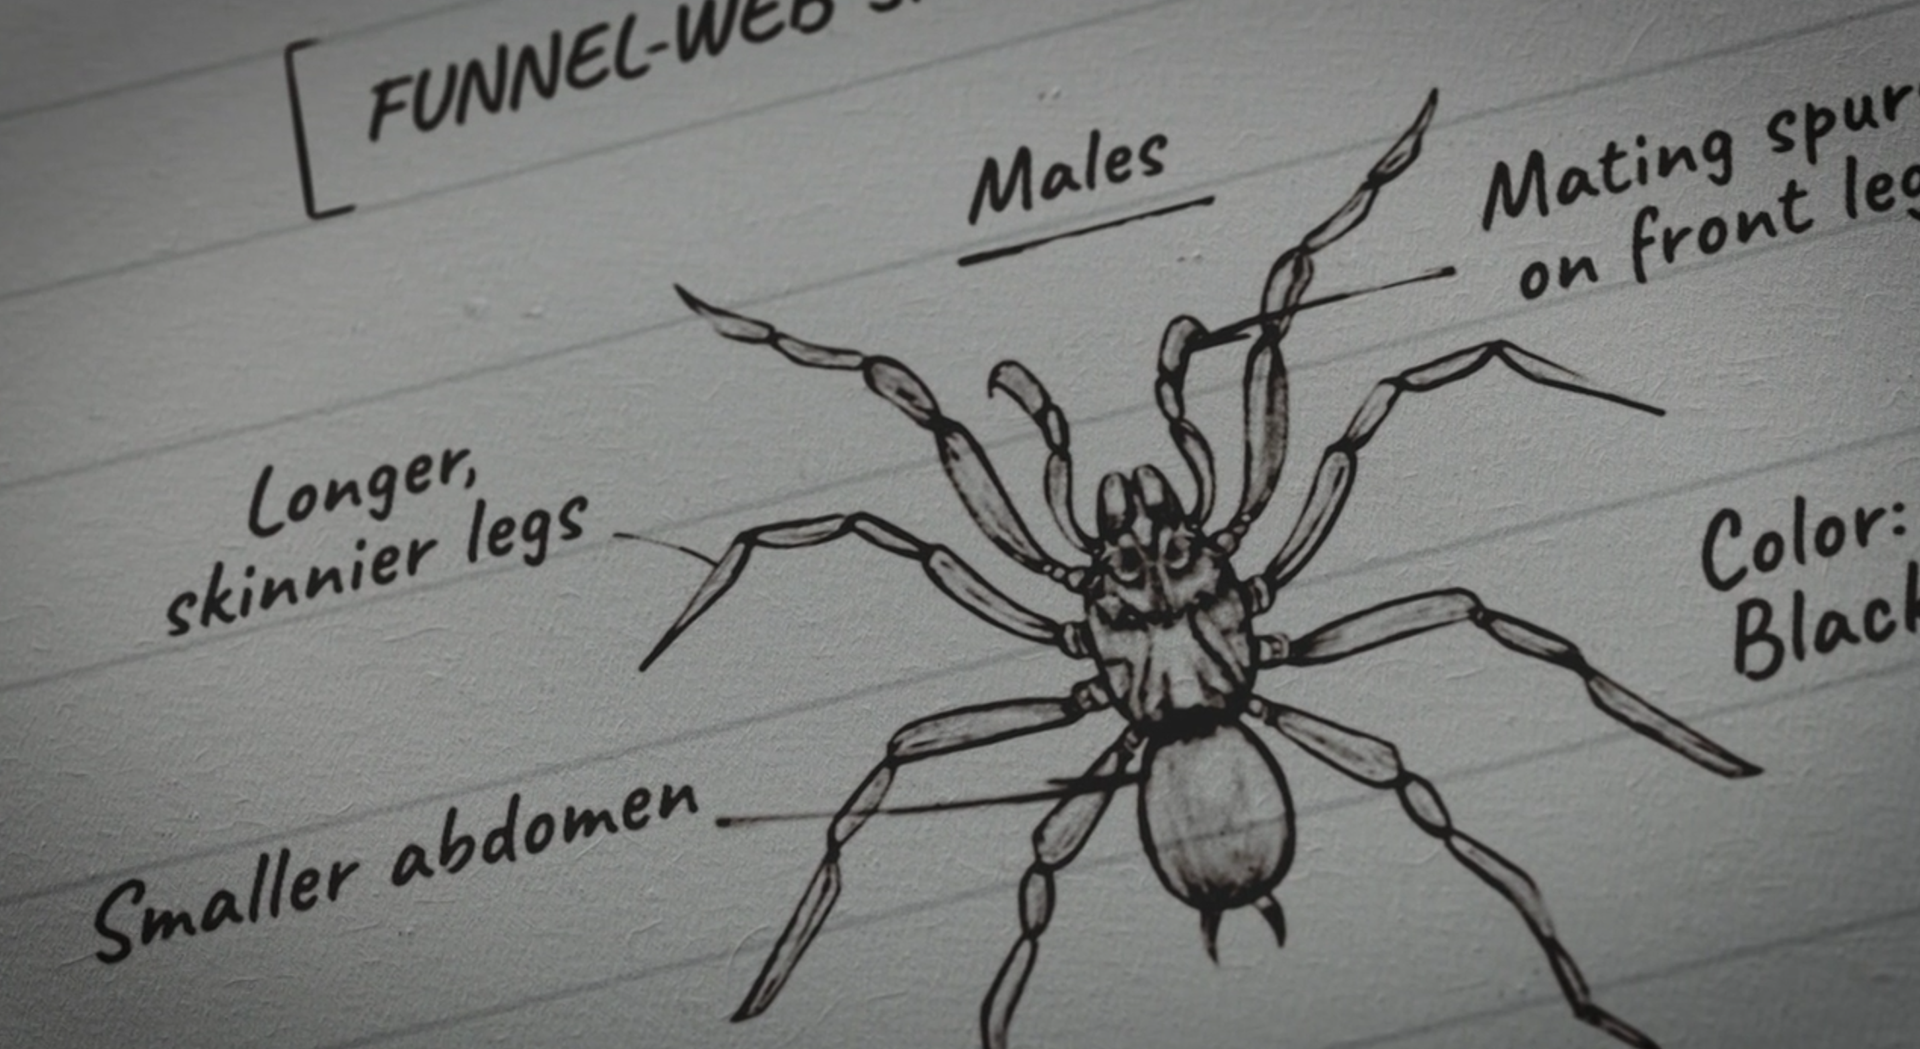 FUNNEL-WEB
Males
Mating spur
on front leg
Longer,
skinnier legs
Color:
Black
Smaller abdomen